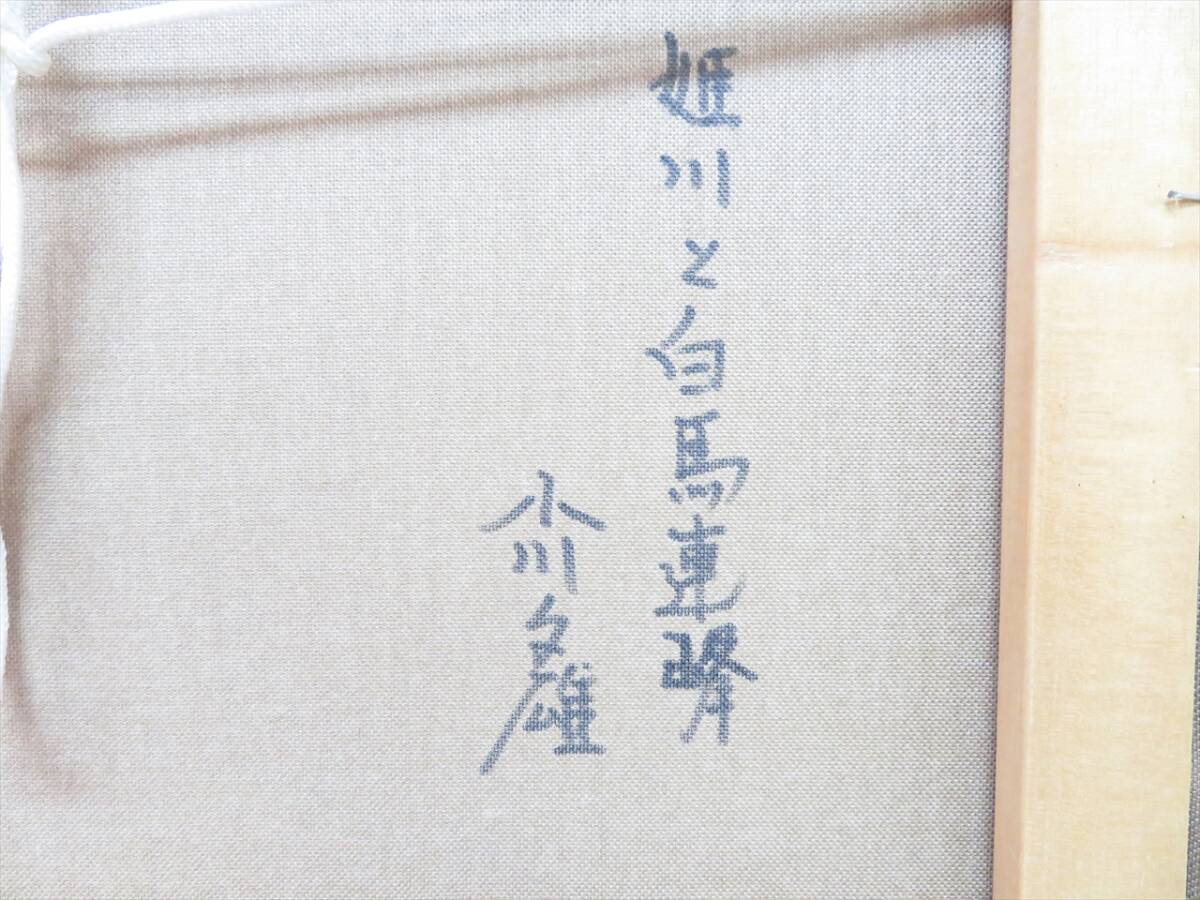 姫川と白馬連峰
小川